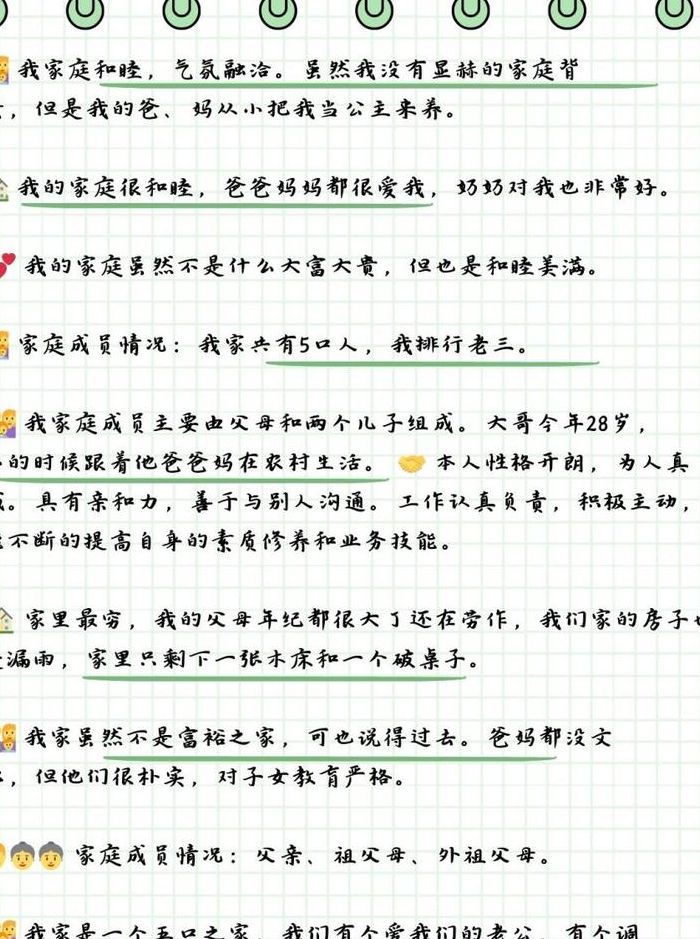 我家庭和睦，气氛融洽。虽然我没有显赫的家庭背
，但是我的爸、妈从小把我当公主来养。
我的家庭很和睦，爸爸妈妈都很爱我，奶奶对我也非常好。
我的家庭虽然不是什么大富大贵，但也是和睦美满。
家庭成员情况：我家共有5口人，我排行老三。
我家庭成员主要由父母和两个儿子组成。大哥今年28岁，
的时候跟着他爸爸妈在农村生活。🤝本人性格开朗，为人真
。具有亲和力，善于与别人沟通。工作认真负责，积极主动，
不断的提高自身的素质修养和业务技能。
家里最穷，我的父母年纪都很大了还在劳作，我们家的房子
漏雨，家里只剩下一张木床和一个破桌子。
我家虽然不是富裕之家，可也说得过去。爸妈都没文
，但他们很朴实，对子女教育严格。
家庭成员情况：父亲、祖父母、外祖父母。
我家是一个五口之家，我们有个爱我们的老公，有个调